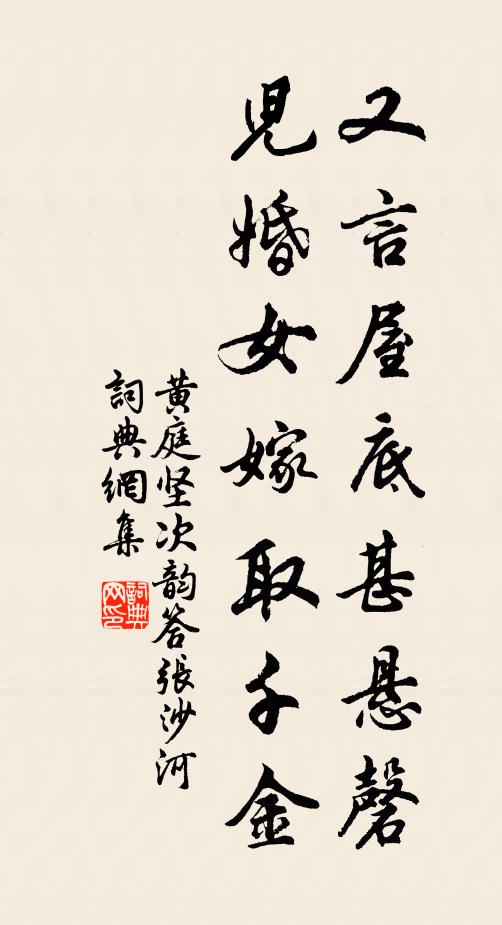 又言屋底甚悬磬
児婚女嫁取千金
黄庭坚次韵答張沙河
詞典網集
詞典网印